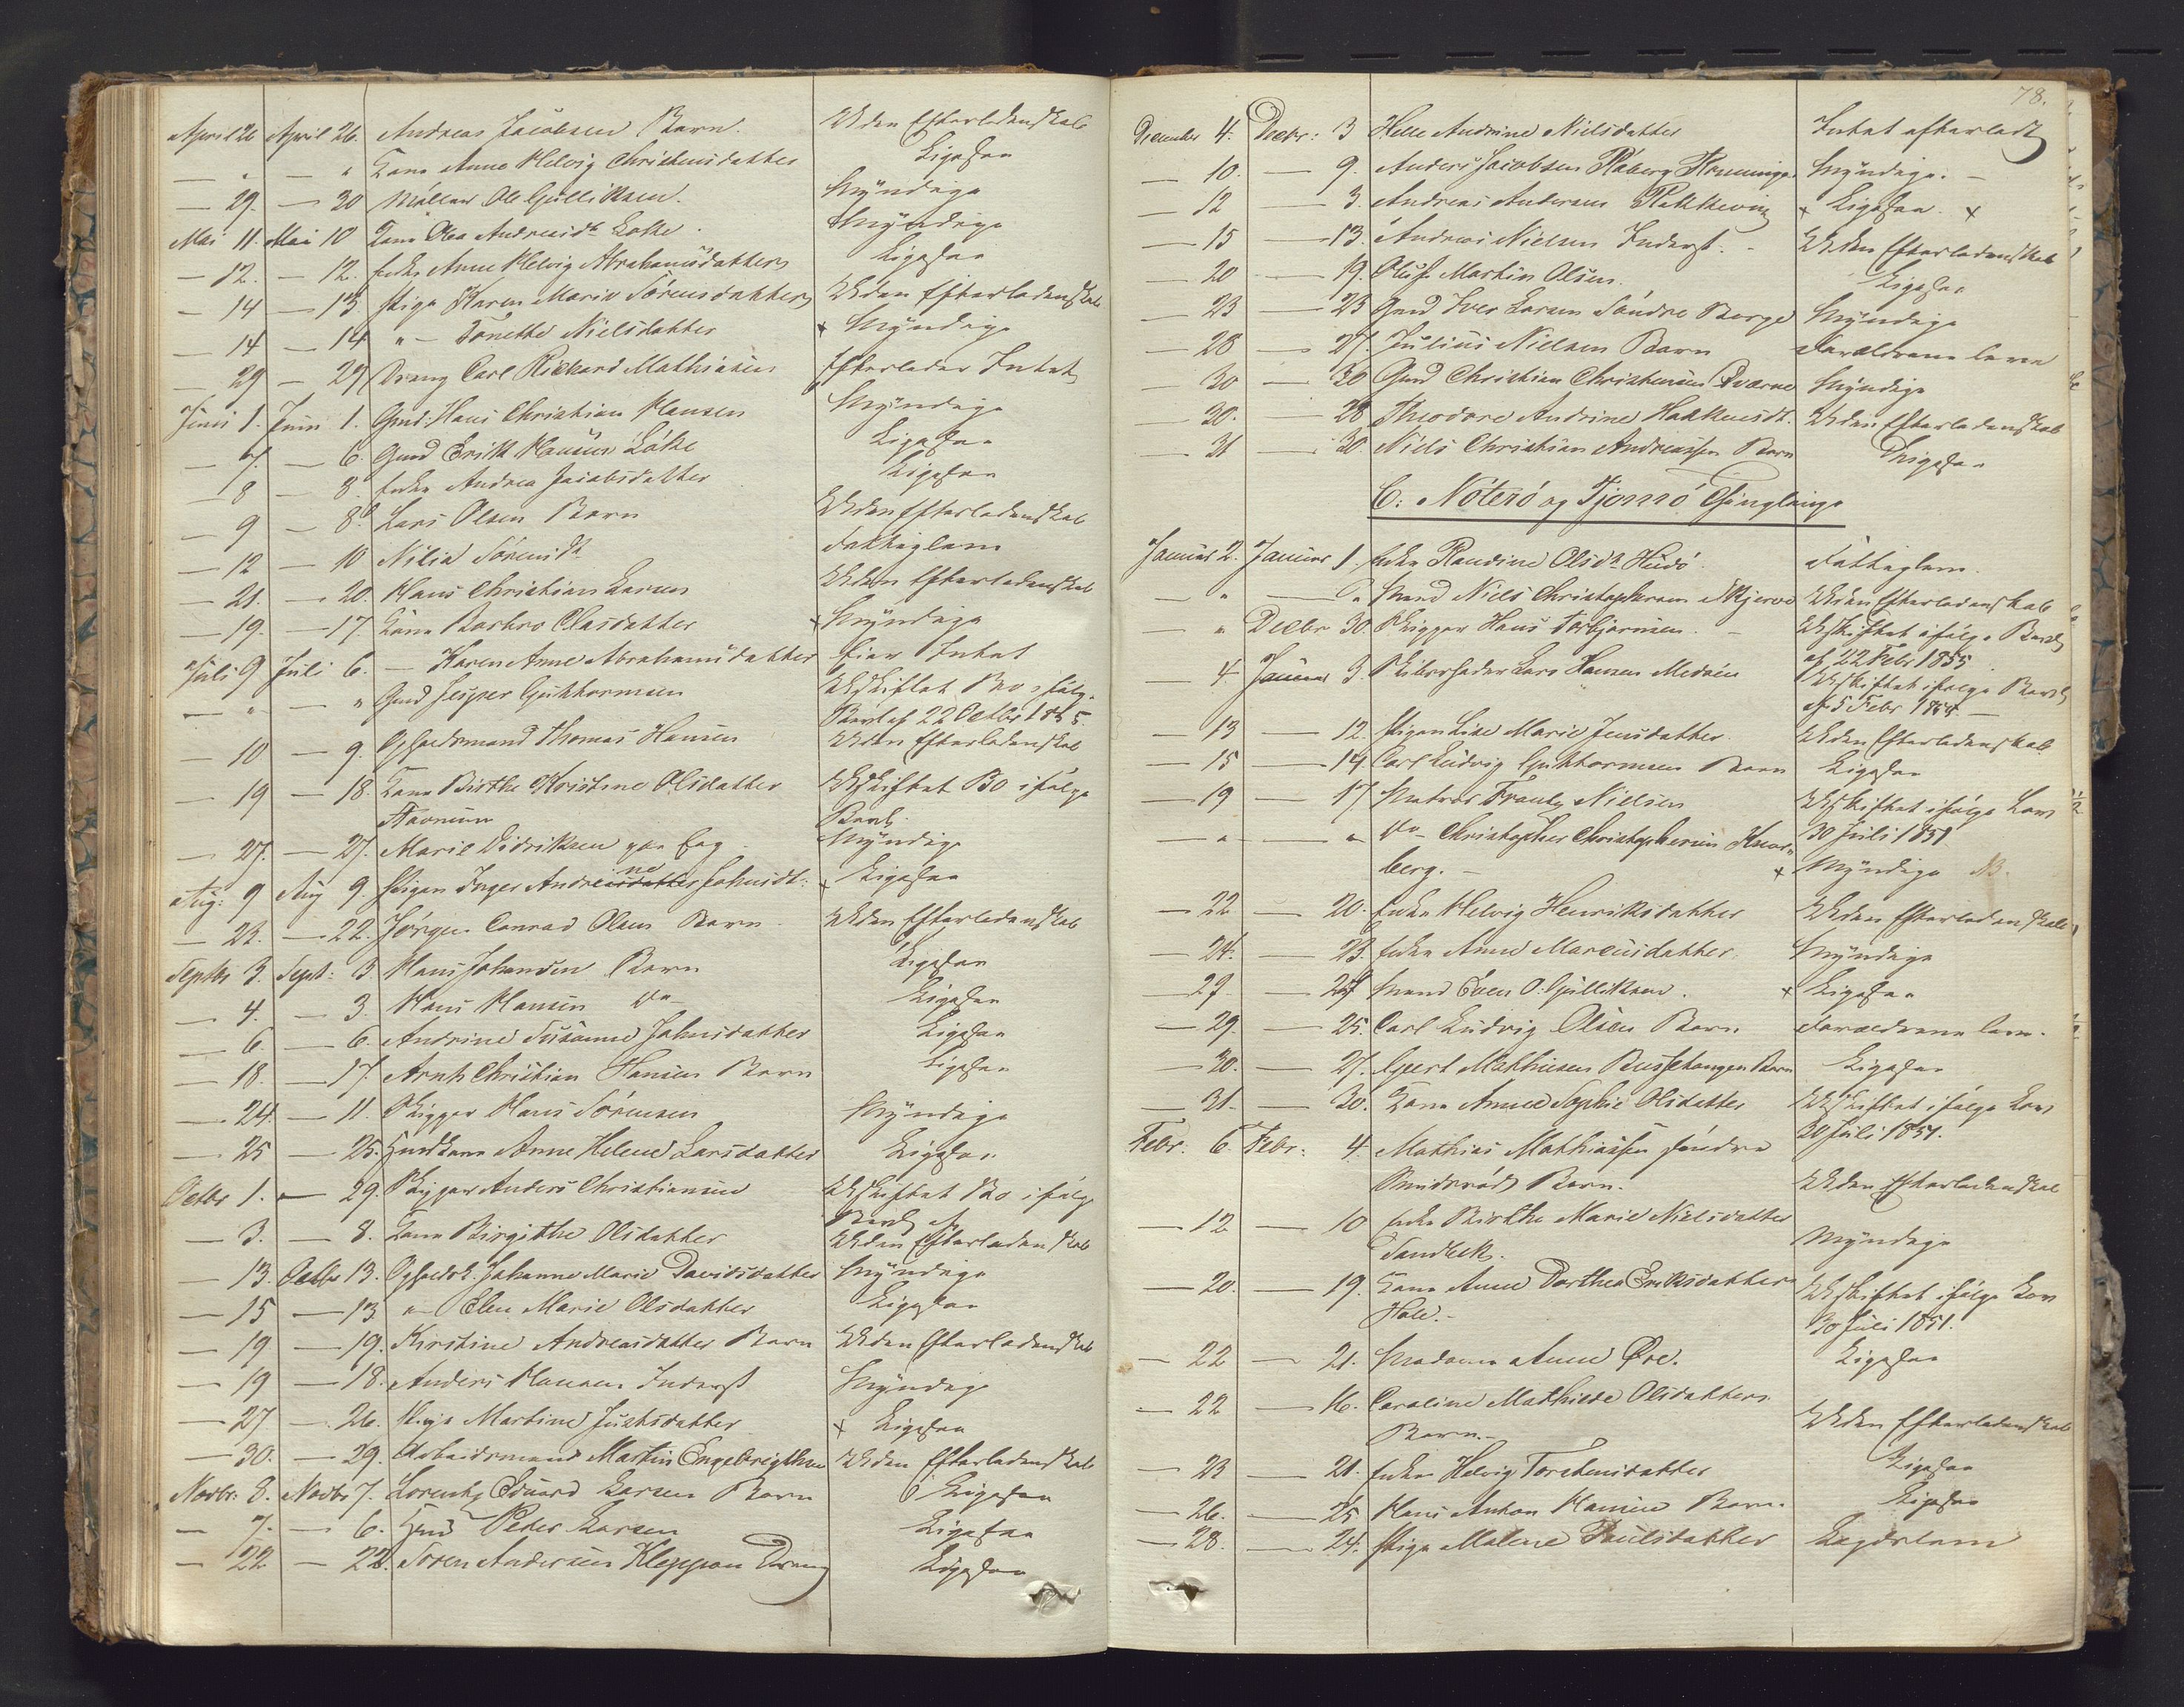 April 26 April 26. Andreas Jacobsen Barn. Uden Efterladenskab
— " — " Kone Anne Helvig Christensdatter Ligesaa
— 29. — 20 Møller Ole Gulliksen. Myndige
Mai 11. Mai 10 Kone Olea Andreasdr Løkke. Myndige
— 12. — 12. Enke Anne Helvig Abrahamsdatter Ligesaa
— 14 — 13 Pige Karen Marie Sørensdatter Uden Efterladenskab
— 14 — 14 " — Tonette Nielsdatter × Myndige
— 29 — 29 Dreng Carl Richard Mathiasen Efterlader Intet
Juni 1. Juni 1. Gmd: Hans Christian Hansen Myndige
— 7. — 6. Gmd Erik Hansen Løkke Ligesaa
— 8 — 8. Enke Andrea Jacobsdatter Ligesaa
— 9 — 8. Lars Olsen Barn Uden Efterladenskab
— 12 — 10 Nilia Sørensdr Fattiglem
— 21. — 20. Hans Christian Larsen Uden Efterladenskab
— 19. — 17. Kone Barbro Olasdatter × Myndige
Juli 9 Juli 6. — Karen Anne Abrahamsdatter Eier Intet
— " — " Gmd Jesper Guttormsen Udskiftet Bo ifølg.
Bevil af 22 Octbr 1855.
— 10 — 9. Opsidsmand Thomas Hansen Uden Efterladenskab
— 19 — 18. Kone Birthe Kristine Olsdatter Udskiftet Bo ifølge
Stavnum Bevil.
— 27. — 27. Marie Didriksen Myndige
Aug: 9 Aug 9. Pigen Inger Andreasdatter ne Johnsdr: × Ligesaa
— 23. — 22. Jørgen Conrad Olsen Barn Uden Efterladenskab
Septbr 3. Sept: 3 Hans Johansen Barn Ligesaa
— 4. — 3. Hans Hansen do Ligesaa
— 6. — 6. Andrine Susanne Johnsdatter Ligesaa
— 18. — 17. Arnt Christian Hansen Barn Ligesaa
— 24. — 11. Skipper Hans Sørensen Myndige
— 25 — 25. Huuskone Anne Helene Larsdatter Ligesaa
Octbr 1. — 29. Skipper Anders Christiansen Udskiftet Bo ifølg
Bevil af
— 3. — 8. Kone Birgithe Olsdatter Uden Efterladenskab
— 13. Octbr 13. Johanne Marie Davidsdatter Myndige
— 15 — 13 " Elen Marie Olsdatter Ligesaa
— 19 — 19. Kirstine Andreasdatter Barn Uden Efterladenskab
— 19 — 18. Anders Hansen Inderst Myndige
— 27 — 26. Pige Martine Justsdatter × Ligesaa
— 30. — 29. Arbeidsmand Martin Engebrigtsen Uden Efterladenskab
Novbr: 8. Novbr 7. Lorentz Eduard Larsen Barn Ligesaa
— 7. — 6. Hmd Peter Larsen Ligesaa
— 22 — 22. Søren Andersen Kleppan Dreng Ligesaa
78.
December 4. Decbr: 3 Helle Andrine Nielsdatter Intet efterladt
— 10. — 9. Anders Jacobsen Raberg Myndige. —
— 12 — 3. Andreas Andersen Rakkevig × Ligesaa. ×
— 15 — 13. Andreas Nielsen Inderst. Uden Efterladenskab
— 20 — 19. Oluf Martin Olsen. Ligesaa
— 23 — 23 Gmd Iver Larsen Søndre Berge Myndige
— 28 — 27. Julius Nielsen Barn Forældrene leve
— 30 — 30 Gmd Christian Christensen Qværne Myndige
— 30. — 28 Theodore Andrine Hakkensdr. Uden Efterladenskab
— 31 — 30. Niels Christian Andreassen Barn Ligesaa
C: Nøterö og Tjømö Thinglaug
Januar 2. Januar 1. Enke Randine Olsdr Hudø. Fattiglem.
— " — " Mand Niels Christophersen Skjerve Uden Efterladenskab
— " Decbr 30. Skipper Hans Torbjørnsen. — Udskiftet ifølge Bevil
af 22 Febr 1855
— 4 Januar 3. Skibsreder Lars Hansen Medøen Udskiftet ifølge Bevil
af 5 Febr 1855. —
— 13 — 12. Pigen Lise Marie Jensdatter Uden Efterladenskab
— 15 — 14 Carl Ludvig Guttormsen Barn Ligesaa
— 19 — 17 Matros Frantz Nielsen Udskiftet ifølge Lov
30 Juli 1851
— " — " do — Christopher Christophersen
berg. — × Myndige NB.
— 22 — 20. Enke Helvig Henriksdatter Uden Efterladenskab
— 24. — 23. Enke Anne Marcusdatter. Myndige
— 27 — 27 Mand Even O. Gulliksen. × Ligesaa
— 29. — 25. Carl Ludvig Olsen Barn Forældrene leve.
— 30. — 27. Geert Mathisen Barn Ligesaa
— 31. — 30. Kone Anne Sophie Olsdatter Udskiftet ifølge Lov
30 Juli 1851.
Febr: 6. Febr: 4. Mathias Mathiassen søndre
Smidsrød Barn. Uden Efterladenskab
— 12 — 10 Enke Birthe Marie Nielsdatter
Sandbek. Myndige
— 20. — 19. Kone Anne Dorthea Eriksdatter Udskiftet ifølge Lov
Hole. — 30 Juli 1851.
— 22 — 21. Madame Anne Øre. Ligesaa
— 22 — 16. Caroline Mathilde Olsdatter
Barn. — Uden Efterladenskab
— 23 — 21. Enke Helvig Torstensdatter Ligesaa
— 26. — 25 Hans Anton Hansen Barn. Ligesaa
— 28. — 24. Pige Malene Poulsdatter Lægdslem